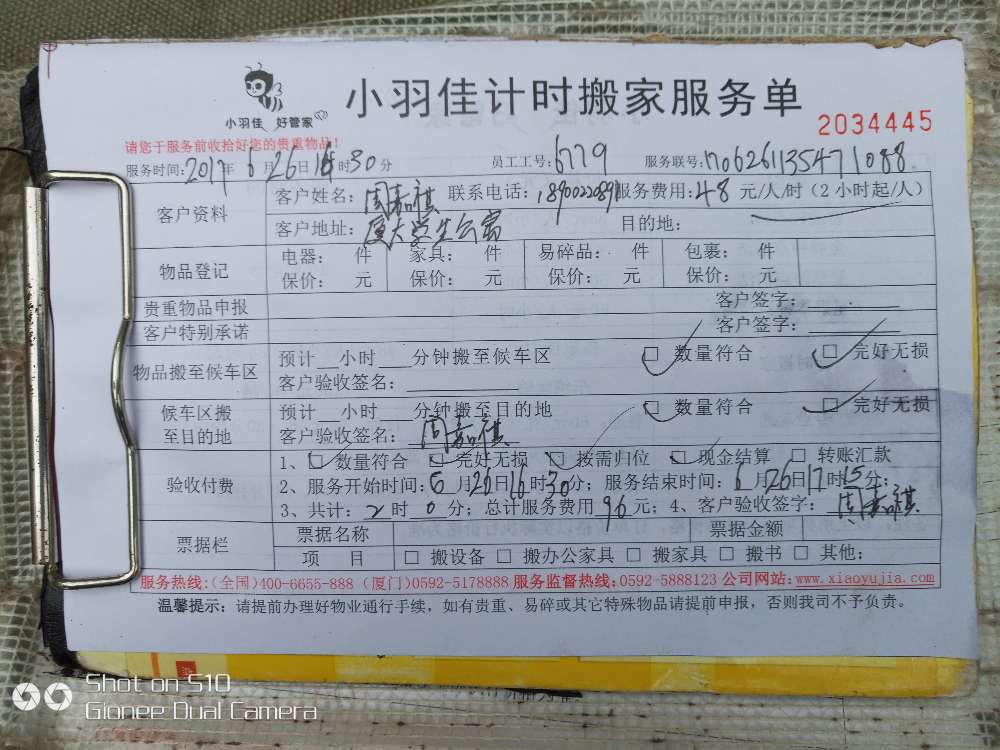 小羽佳 好管家
小羽佳计时搬家服务单
2034445
请您于服务前收拾好您的贵重物品!
服务时间:2017年6月26日16时30分 员工工号:6779 服务联号:1706261135471088
客户资料 客户姓名:周嘉祺 联系电话:18900220891 服务费用:48元/人/时(2小时起/人)
客户地址:厦大学生公寓 目的地:
物品登记 电器: 件 家具: 件 易碎品: 件 包裹: 件
保价: 元 保价: 元 保价: 元 保价: 元
贵重物品申报 客户签字:
客户特别承诺 客户签字:
物品搬至候车区 预计__小时___分钟搬至候车区 □ 数量符合 □ 完好无损
客户验收签名:
候车区搬至目的地 预计__小时___分钟搬至目的地 □ 数量符合 □ 完好无损
客户验收签名:周嘉祺
验收付费 1、□ 数量符合 □ 完好无损 □ 按需归位 □ 现金结算 □ 转账汇款
2、服务开始时间:6月26日16时30分;服务结束时间:6月26日17时15分;
3、共计:2时0分;总计服务费用96元;4、客户验收签字:周嘉祺
票据栏 票据名称 票据金额
项 目 □ 搬设备 □ 搬办公家具 □ 搬家具 □ 搬书 □ 其他:
服务热线:(全国)400-6655-888 (厦门)0592-5178888 服务监督热线:0592-5888123 公司网站:www.xiaoyujia.com
温馨提示:请提前办理好物业通行手续,如有贵重、易碎或其它特殊物品请提前申报,否则我司不予负责。
Shot on S10
Gionee Dual Camera